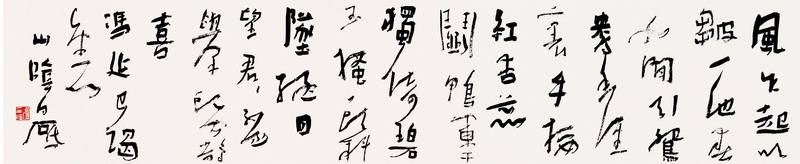 風乍起吹
皺一池春
水閒引鴛
鴦香徑
裏手挼
紅杏蕊
鬭鴨闌干
獨倚碧
玉搔頭斜
墜終日
望君君不至
舉頭聞鵲
喜
馮延巳謁
金門
山陰